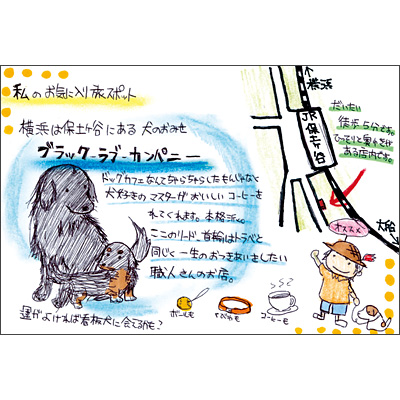 私のお気に入り旅スポット
横浜は保土ヶ谷にある 犬のおみせ
ブラック・ラブ・カンパニー
ドッグカフェなんてちゃらちゃらしたもんじゃなく
犬好きのマスターがおいしいコーヒーを
いれてくれます。本格派。
ここのリード、首輪はトラベと
同じく一生のおつきあいをしたい
職人さんのお店。
運がよければ看板犬に会えるかも?
ボールも
コーヒーも
横浜
JR保土ヶ谷
だいたい
徒歩5分です。
ひっそりと
ある店内です。
大船
オススメ